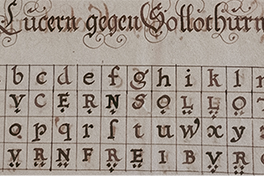 Lucern gegen Sollothurn
b c d e f g h i k l
V C E R N S O L L O
o p q r ſ t u w x y z
V R N F R E I B V R